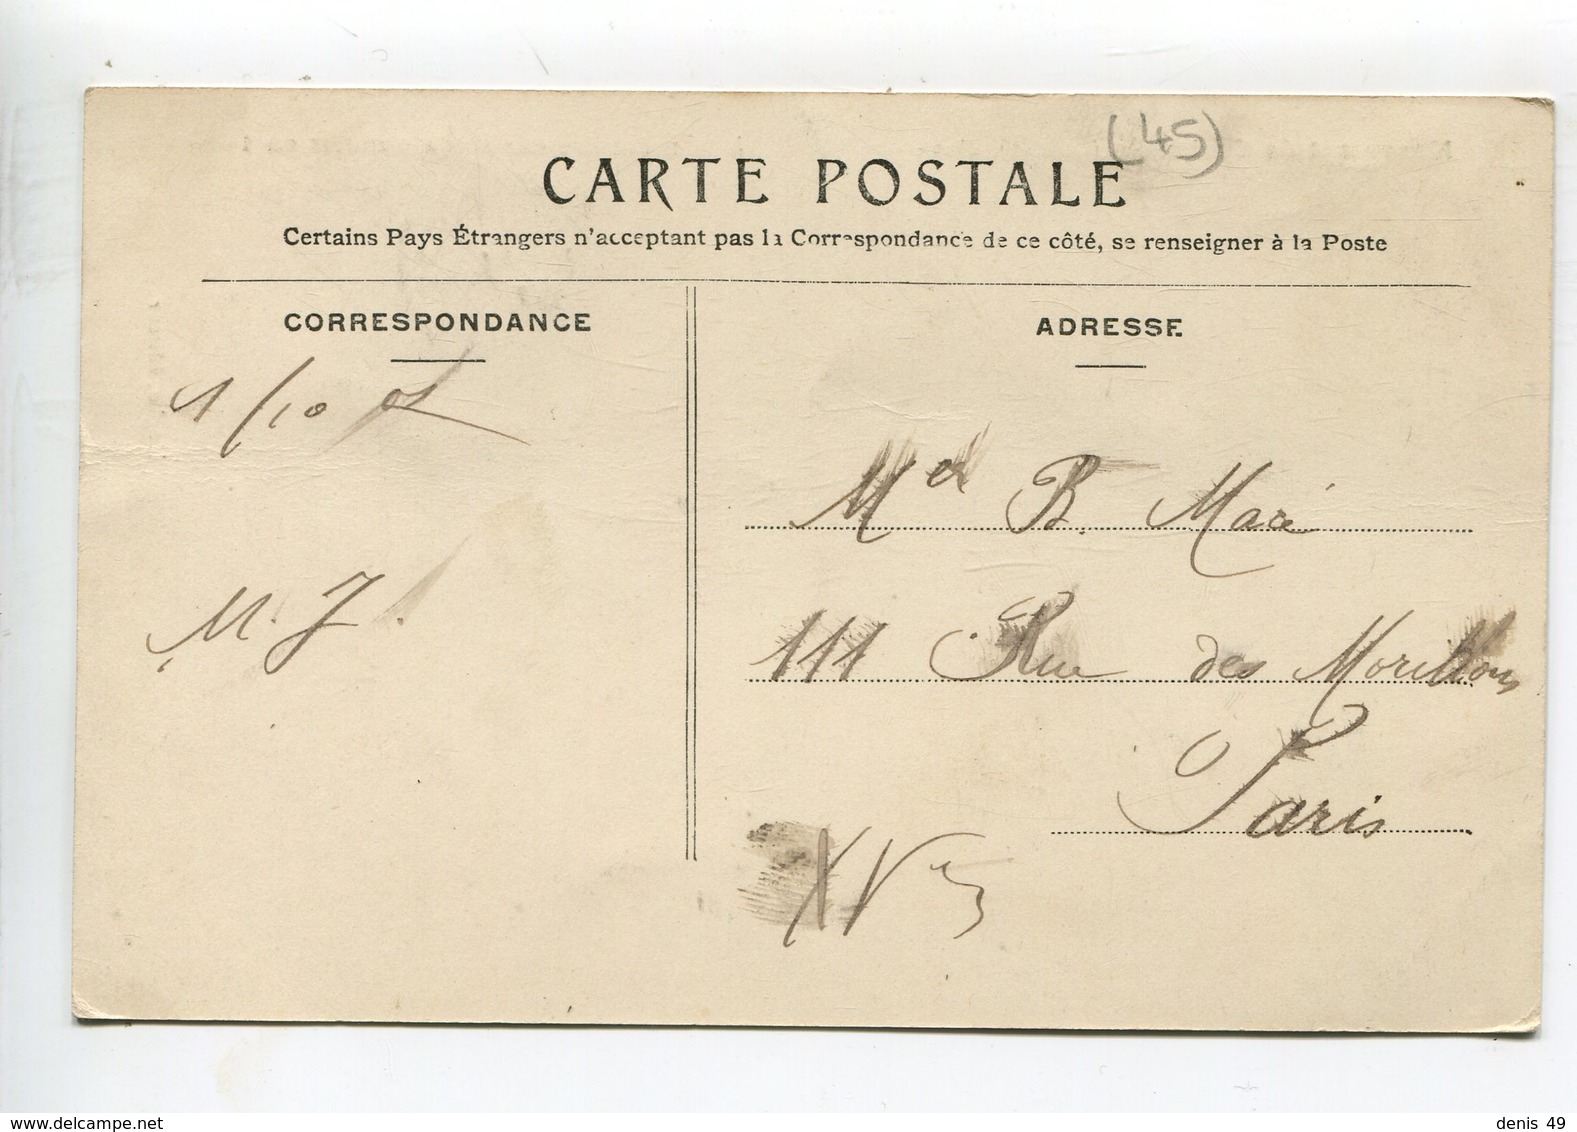 (45)
CARTE POSTALE
Certains Pays Étrangers n'acceptant pas la Correspondance de ce côté, se renseigner à la Poste
CORRESPONDANCE
ADRESSE
1/10
M. J.
B. Maré
111 Rue des Morillons
Paris
XV
www.delcampe.net
denis 49